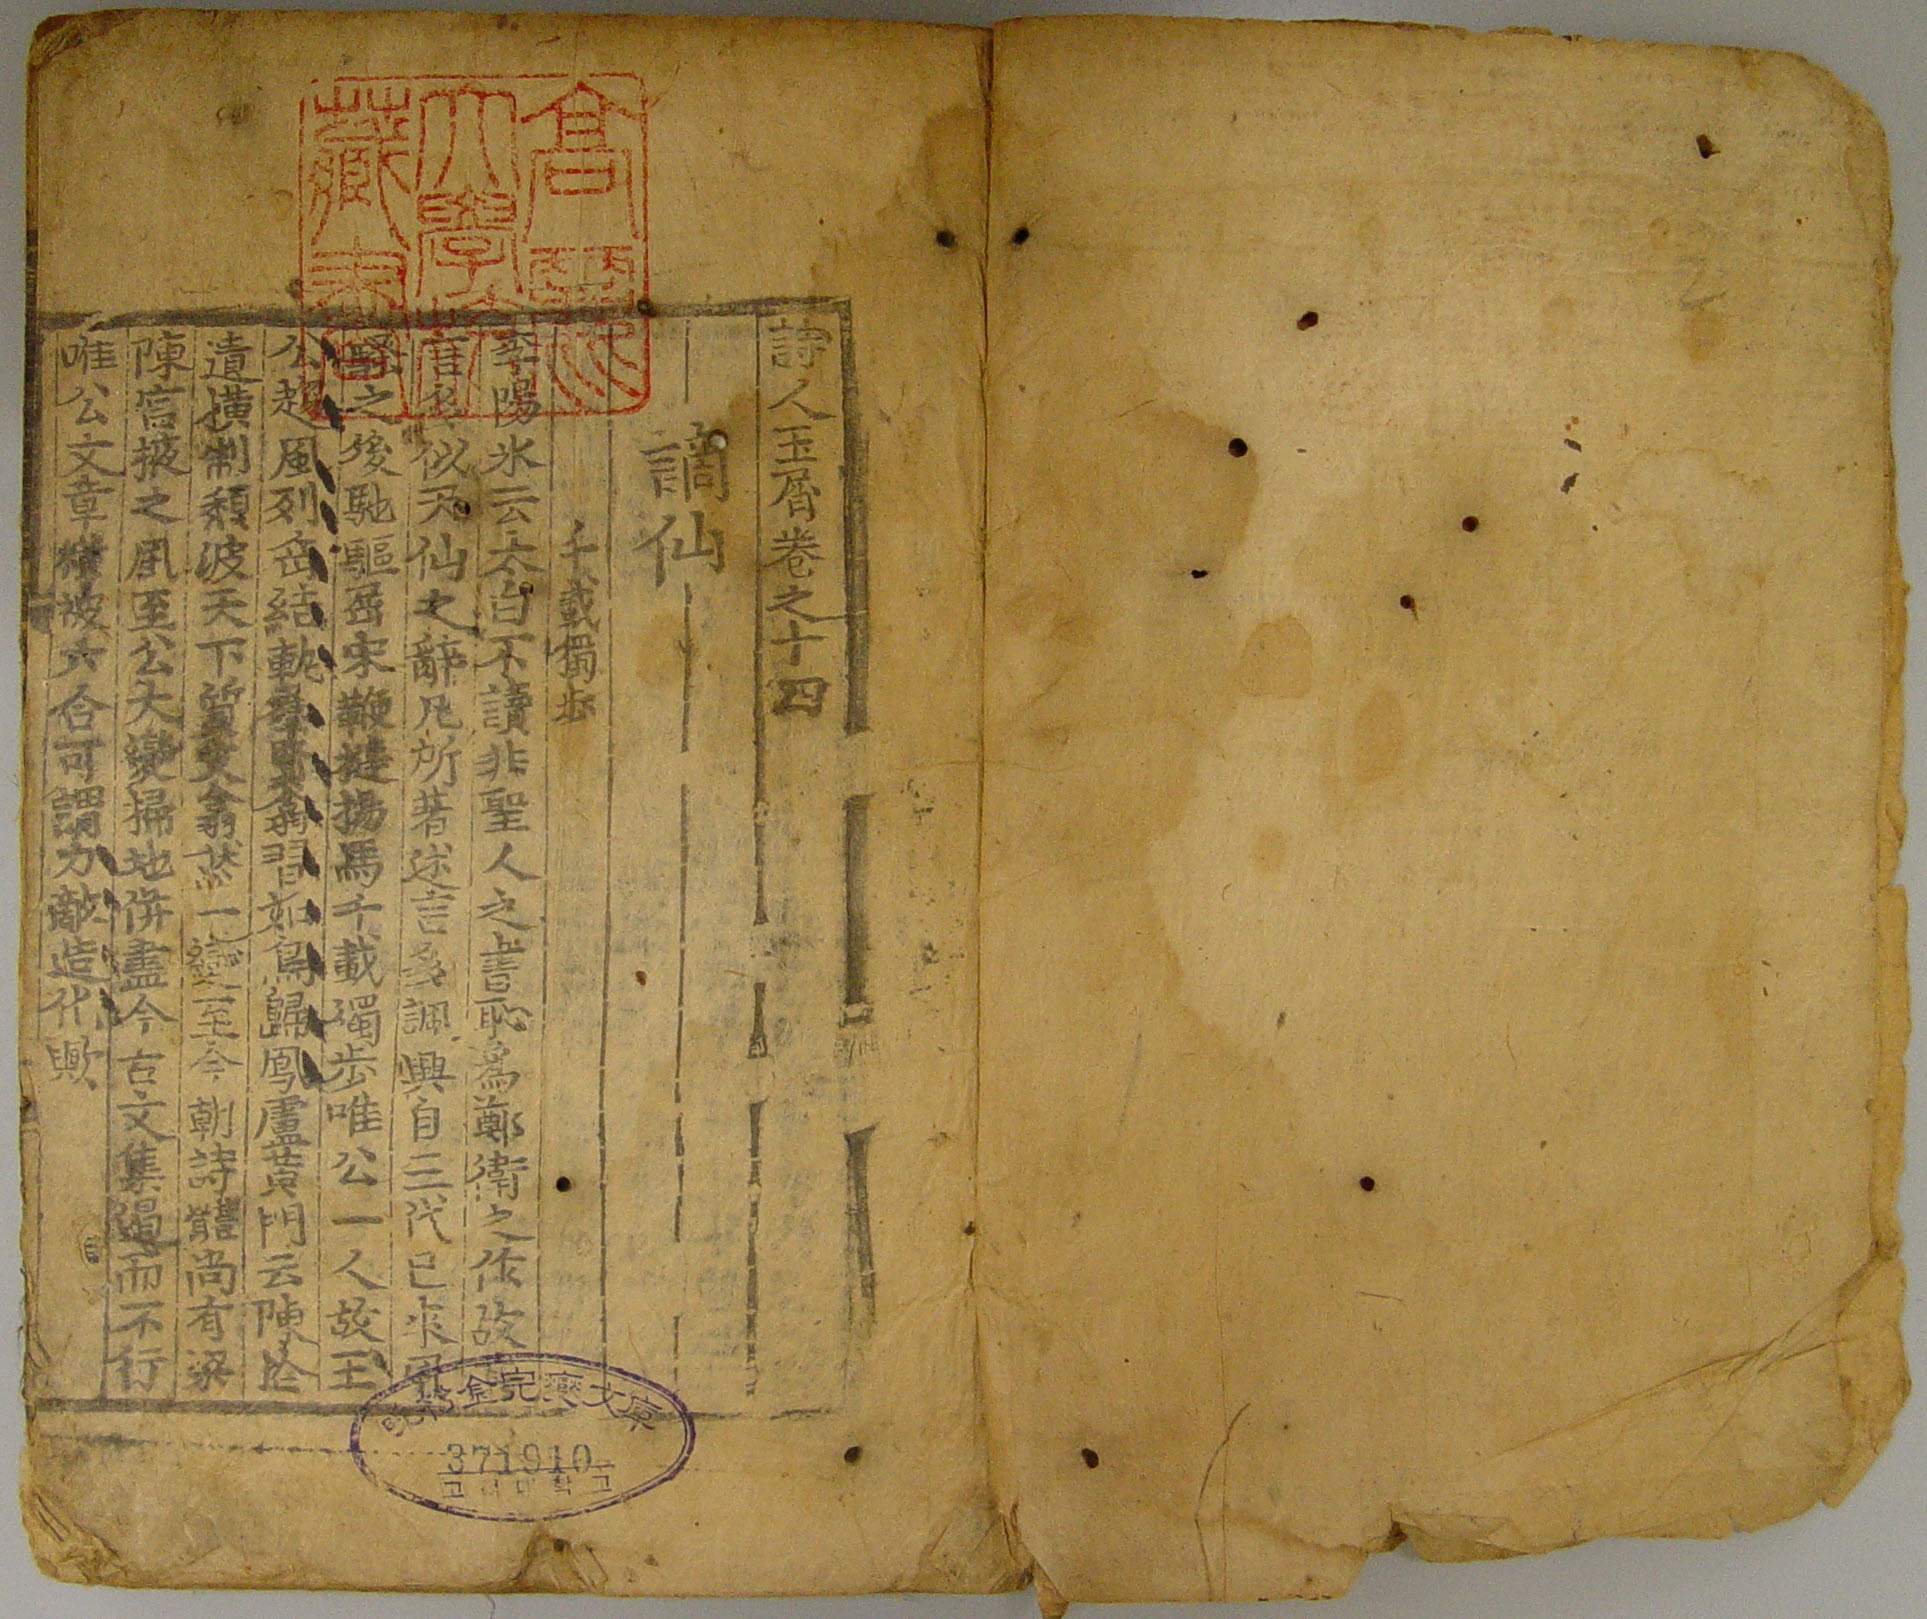 詩人玉屑卷之十四
謫仙
千載獨步
李陽氷云太白不讀非聖人之書恥爲鄭衛之作故
言多似天仙之辭凡所著述言多諷興自三代已來風
騷之後馳驅屈宋鞭撻揚馬千載獨步唯公一人故王
公趨風列岳結軌羣賢翕習如鳥歸鳳盧黃門云陳拾
遺橫制頹波天下質文翕然一變至今朝詩體尚有梁
陳宮掖之風至公大變掃地併盡今古文集遏而不行
唯公文章橫被六合可謂力敵造化歟
高麗
大學校
藏書
晩松金完燮文庫
371910
고려대학교